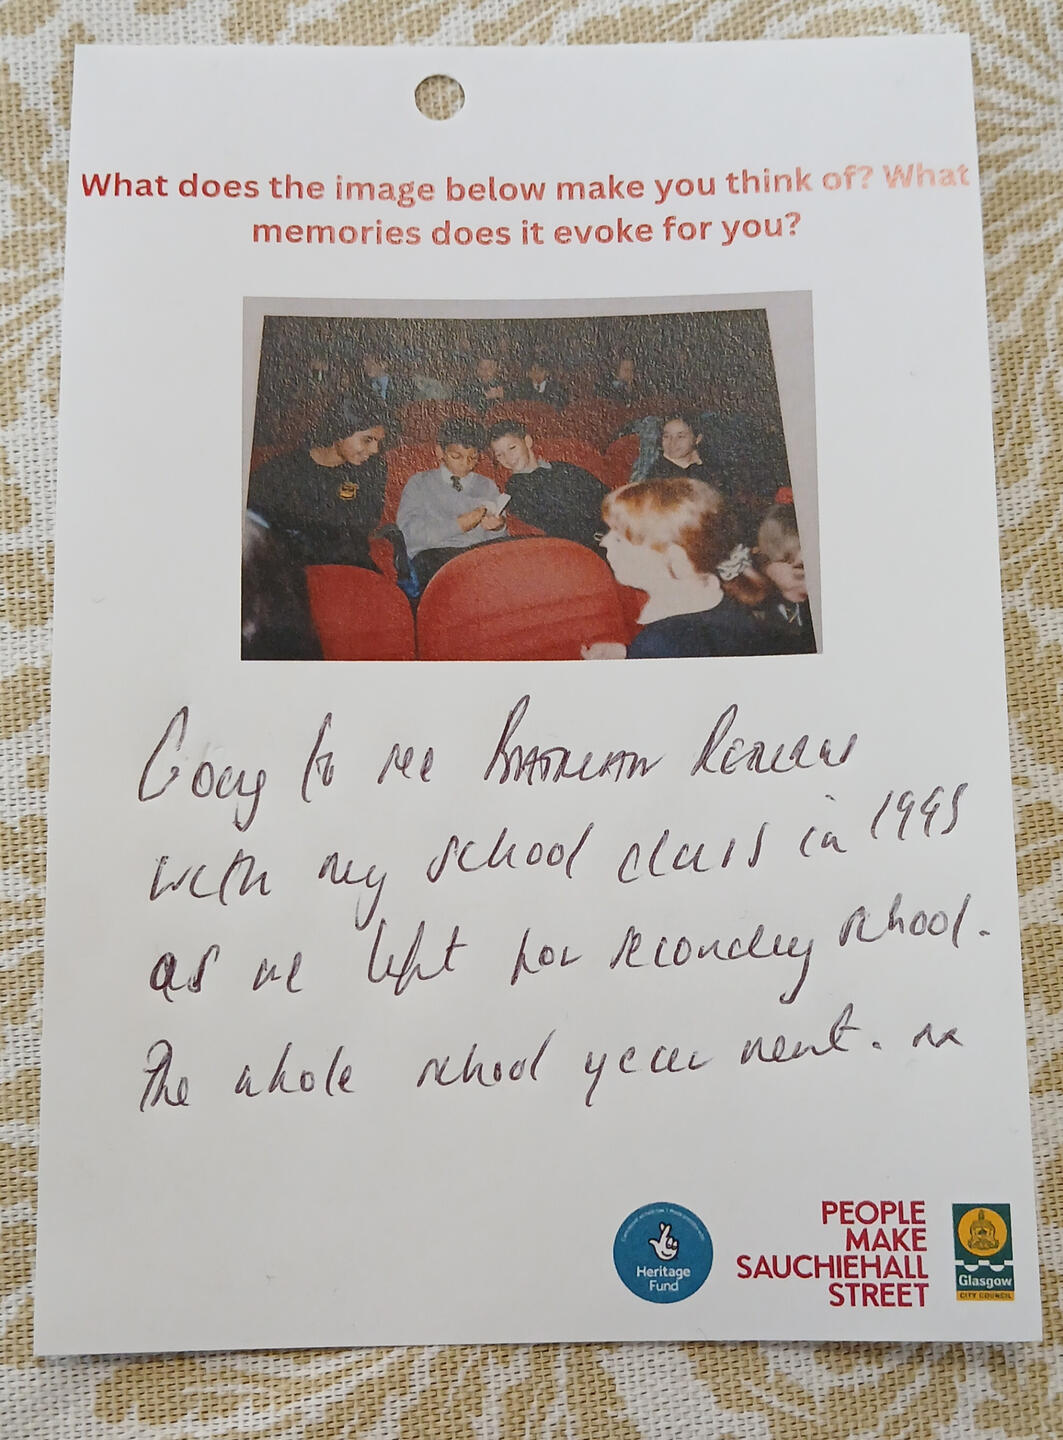 What does the image below make you think of? What
memories does it evoke for you?
Going to see BATMAN Returns
with my school class in 1995
as we left for secondary school.
The whole school year went.
Heritage
Fund
PEOPLE
MAKE
SAUCHIEHALL
STREET
Glasgow
CITY COUNCIL